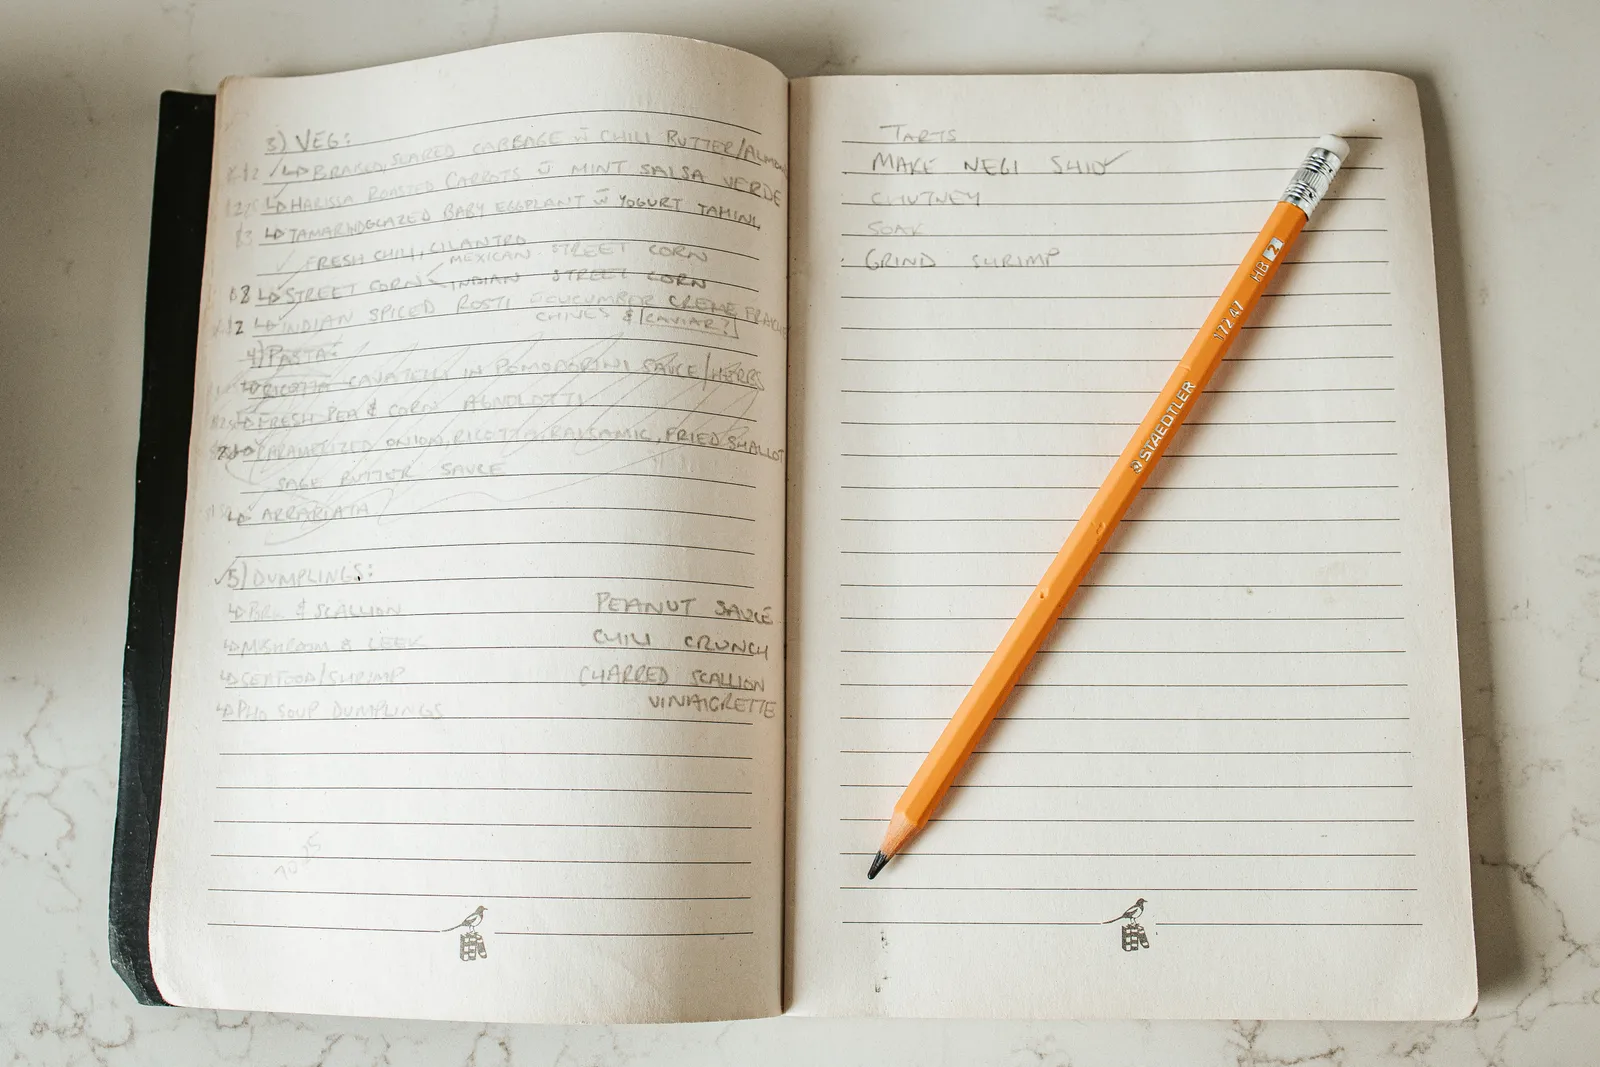 3) VEG:
↳ BRAISED, SEARED CABBAGE w̄ CHILI BUTTER/ALMON
↳ HARISSA ROASTED CARROTS w̄ MINT SALSA VERDE
↳ TAMARIND GLAZED BABY EGGPLANT w̄ YOGURT TAHINI,
FRESH CHILI, CILANTRO
MEXICAN STREET CORN
↳ STREET CORN < INDIAN STREET CORN
↳ INDIAN SPICED ROSTI w̄ CUCUMBER CREME FRAICHE
CHIVES & [CAVIAR?]
4) PASTA:
↳ RICOTTA CAVATELLI IN POMODORINI SAUCE/HERBS
↳ FRESH PEA & CORN AGNOLOTTI
CARAMELIZED ONION, RICOTTA, BALSAMIC, FRIED SHALLOT
SAGE BUTTER SAUCE
↳ ARRABIATA
✓5) DUMPLINGS:
↳ PORK & SCALLION PEANUT SAUCE
↳ MUSHROOM & LEEK CHILI CRUNCH
↳ SEAFOOD/SHRIMP CHARRED SCALLION
↳ PHO SOUP DUMPLINGS VINAIGRETTE
TARTS
MAKE NEGI SHIO ✓
CHUTNEY
SOAK
GRIND SHRIMP
STAEDTLER 172 47 HB 2